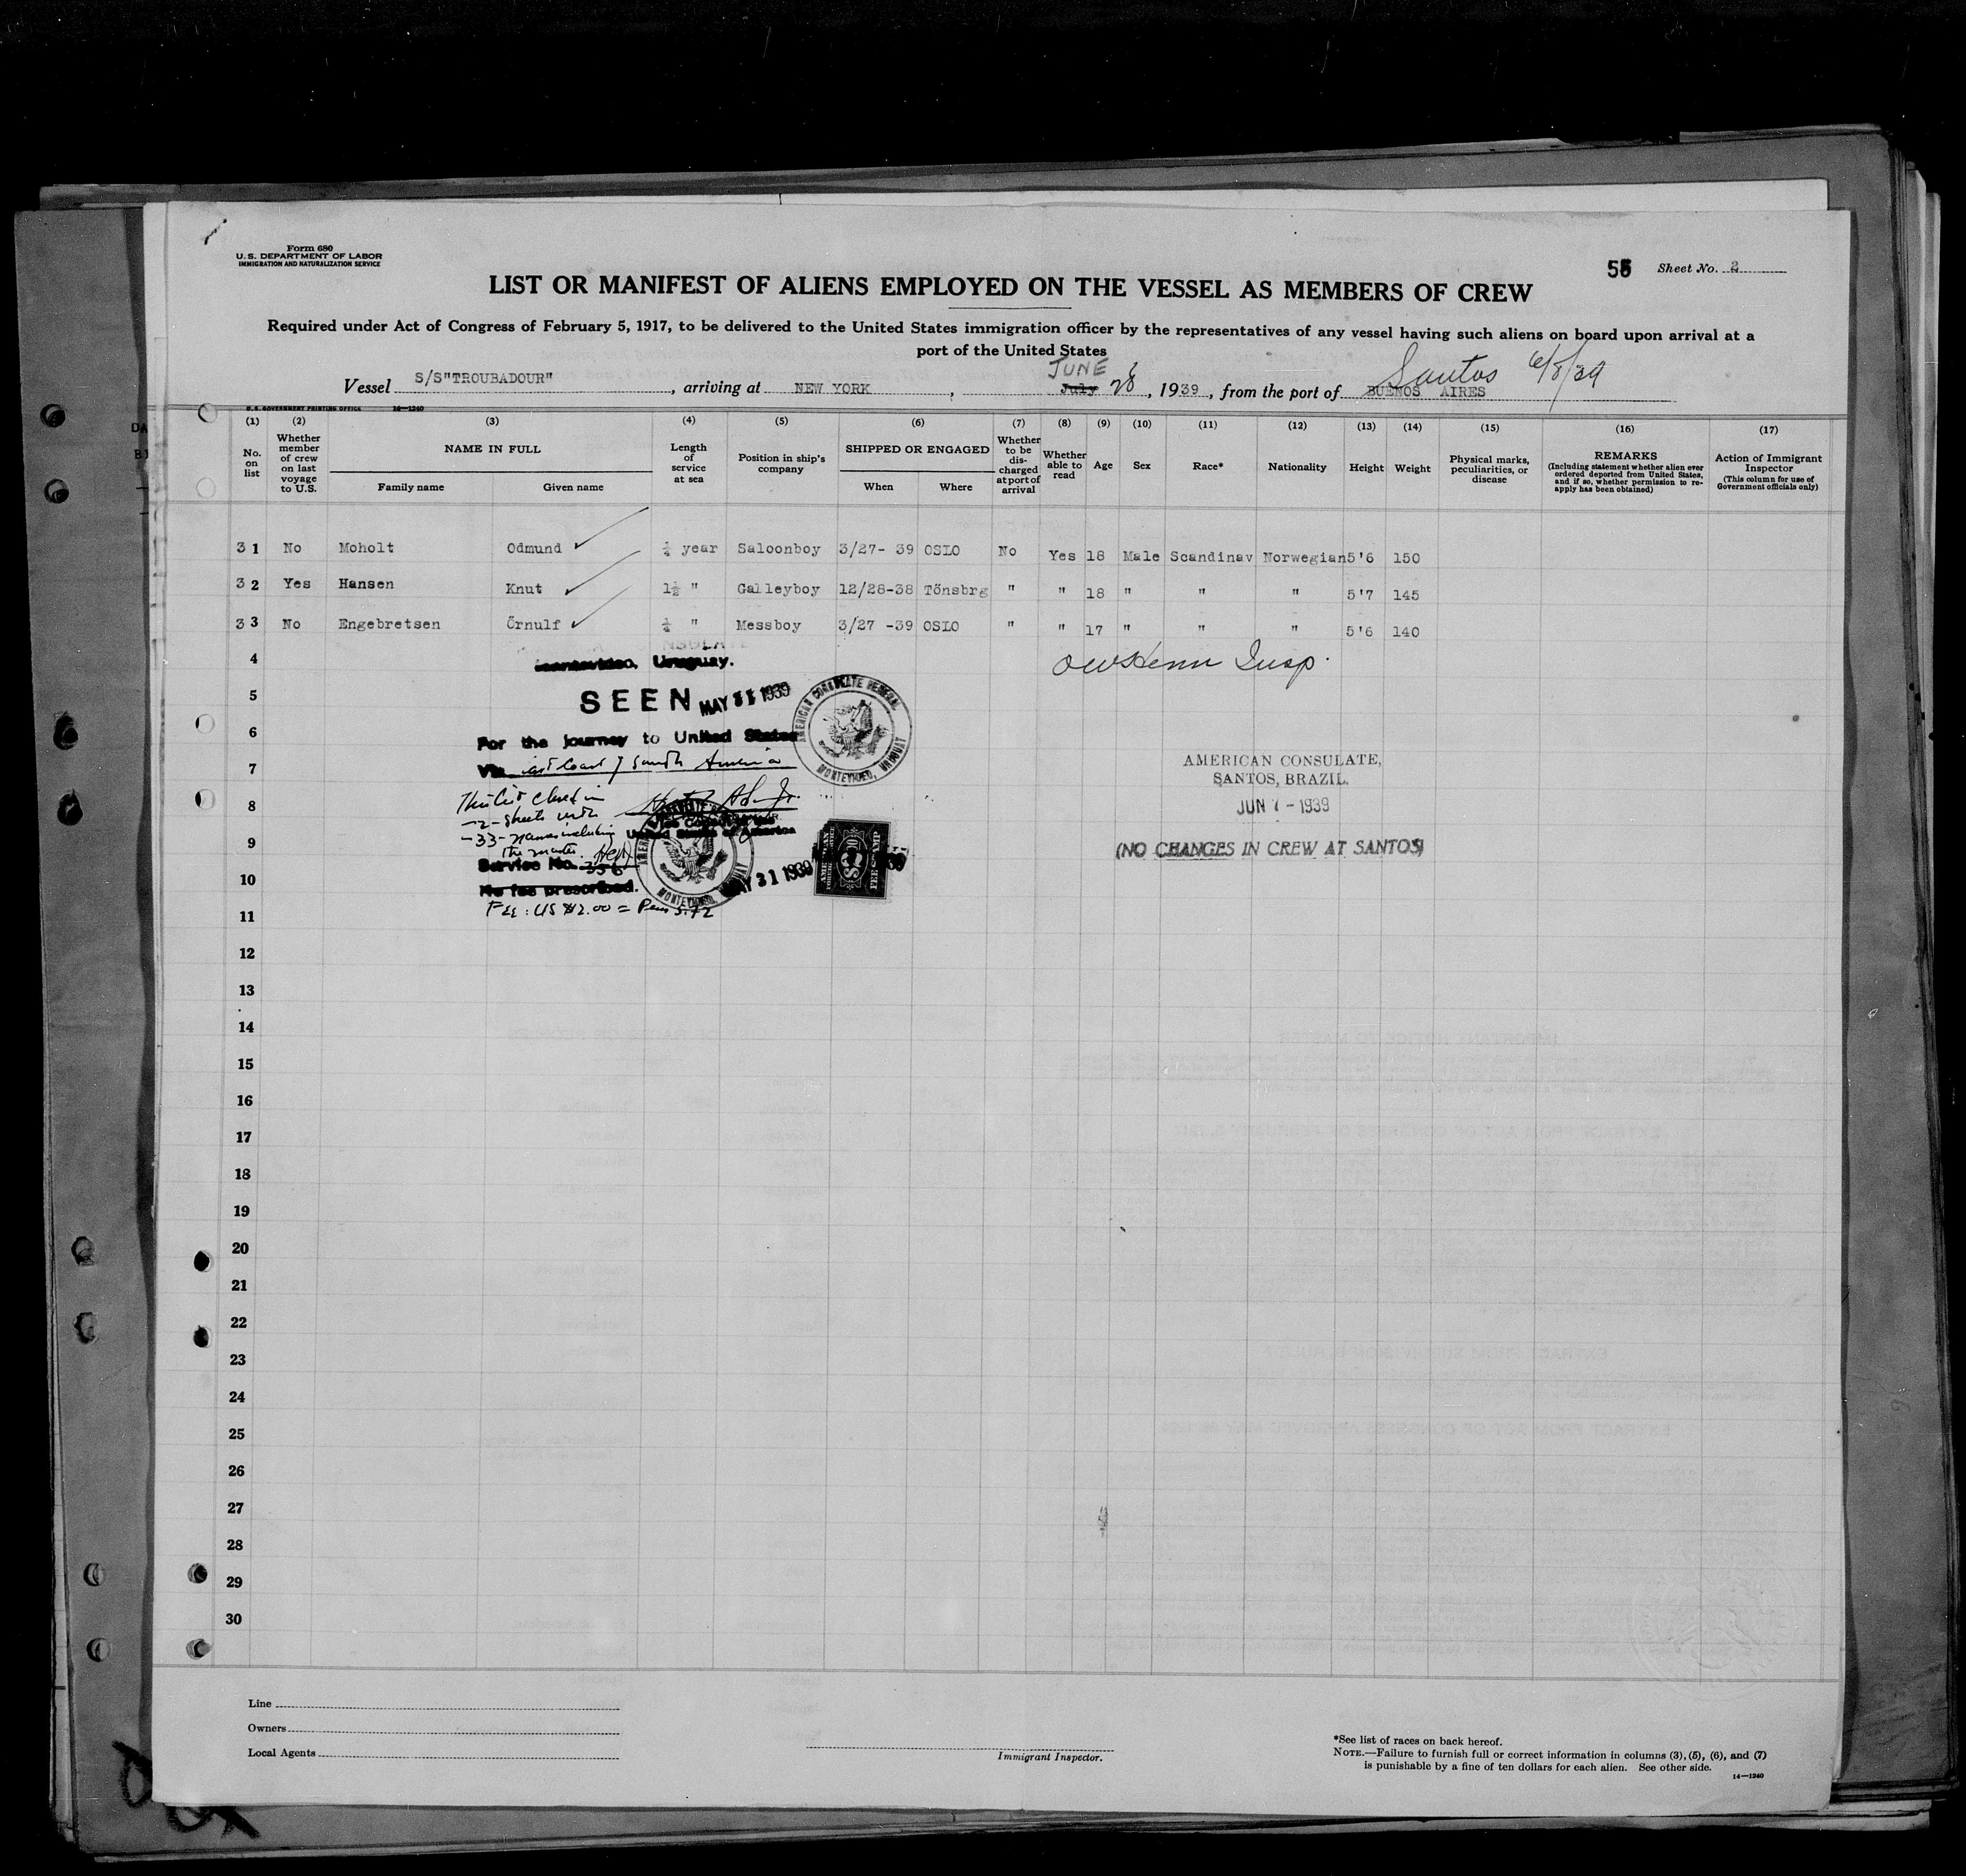 Form 680
U.S. DEPARTMENT OF LABOR
IMMIGRATION AND NATURALIZATION SERVICE
Sheet No. 2
LIST OR MANIFEST OF ALIENS EMPLOYED ON THE VESSEL AS MEMBERS OF CREW
Required under Act of Congress of February 5, 1917, to be delivered to the United States immigration officer by the representatives of any vessel having such aliens on board upon arrival at a
port of the United States
JUNE Santos 6/8/39
Vessel S/S"TROUBADOUR", arriving at NEW YORK, July 28, 1939, from the port of BUENOS AIRES
U.S. GOVERNMENT PRINTING OFFICE 14—1240
(1) (2) (3) (4) (5) (6) (7) (8) (9) (10) (11) (12) (13) (14) (15) (16) (17)
No. on list
Whether member of crew on last voyage to U.S.
NAME IN FULL
Family name Given name
Length of service at sea
Position in ship's company
SHIPPED OR ENGAGED
When Where
Whether to be discharged at port of arrival
Whether able to read
Age
Sex
Race*
Nationality
Height
Weight
Physical marks, peculiarities, or disease
REMARKS
(Including statement whether alien ever ordered deported from United States, and if so, whether permission to re-apply has been obtained)
Action of Immigrant Inspector
(This column for use of Government officials only)
31 No Moholt Odmund ¼ year Saloonboy 3/27- 39 OSLO No Yes 18 Male Scandinav Norwegian 5'6 150
32 Yes Hansen Knut 1½ " Galleyboy 12/28-38 Tönsbrg " " 18 " " " 5'7 145
33 No Engebretsen Örnulf ¼ " Messboy 3/27 -39 OSLO " " 17 " " " 5'6 140
4 Montevideo, Uruguay.
Insp.
5 SEEN MAY 31 1939
AMERICAN CONSULATE GENERAL
MONTEVIDEO, URUGUAY
6 For the journey to United States
7 Via east Coast of South America
AMERICAN CONSULATE,
SANTOS, BRAZIL.
8 This list closed in
JUN 7 - 1939
-2- sheets with
-33- names including
the master.
Vice Consul of the
United States of America
9 Service No. 336
(NO CHANGES IN CREW AT SANTOS)
10 No fee prescribed.
MAY 31 1939
AMERICAN
$2.00
FEE STAMP
11 Fee: US $2.00 = Pesos 5.72
12
13
14
15
16
17
18
19
20
21
22
23
24
25
26
27
28
29
30
Line
Owners
Local Agents
Immigrant Inspector.
*See list of races on back hereof.
NOTE.—Failure to furnish full or correct information in columns (3), (5), (6), and (7)
is punishable by a fine of ten dollars for each alien. See other side.
14—1240